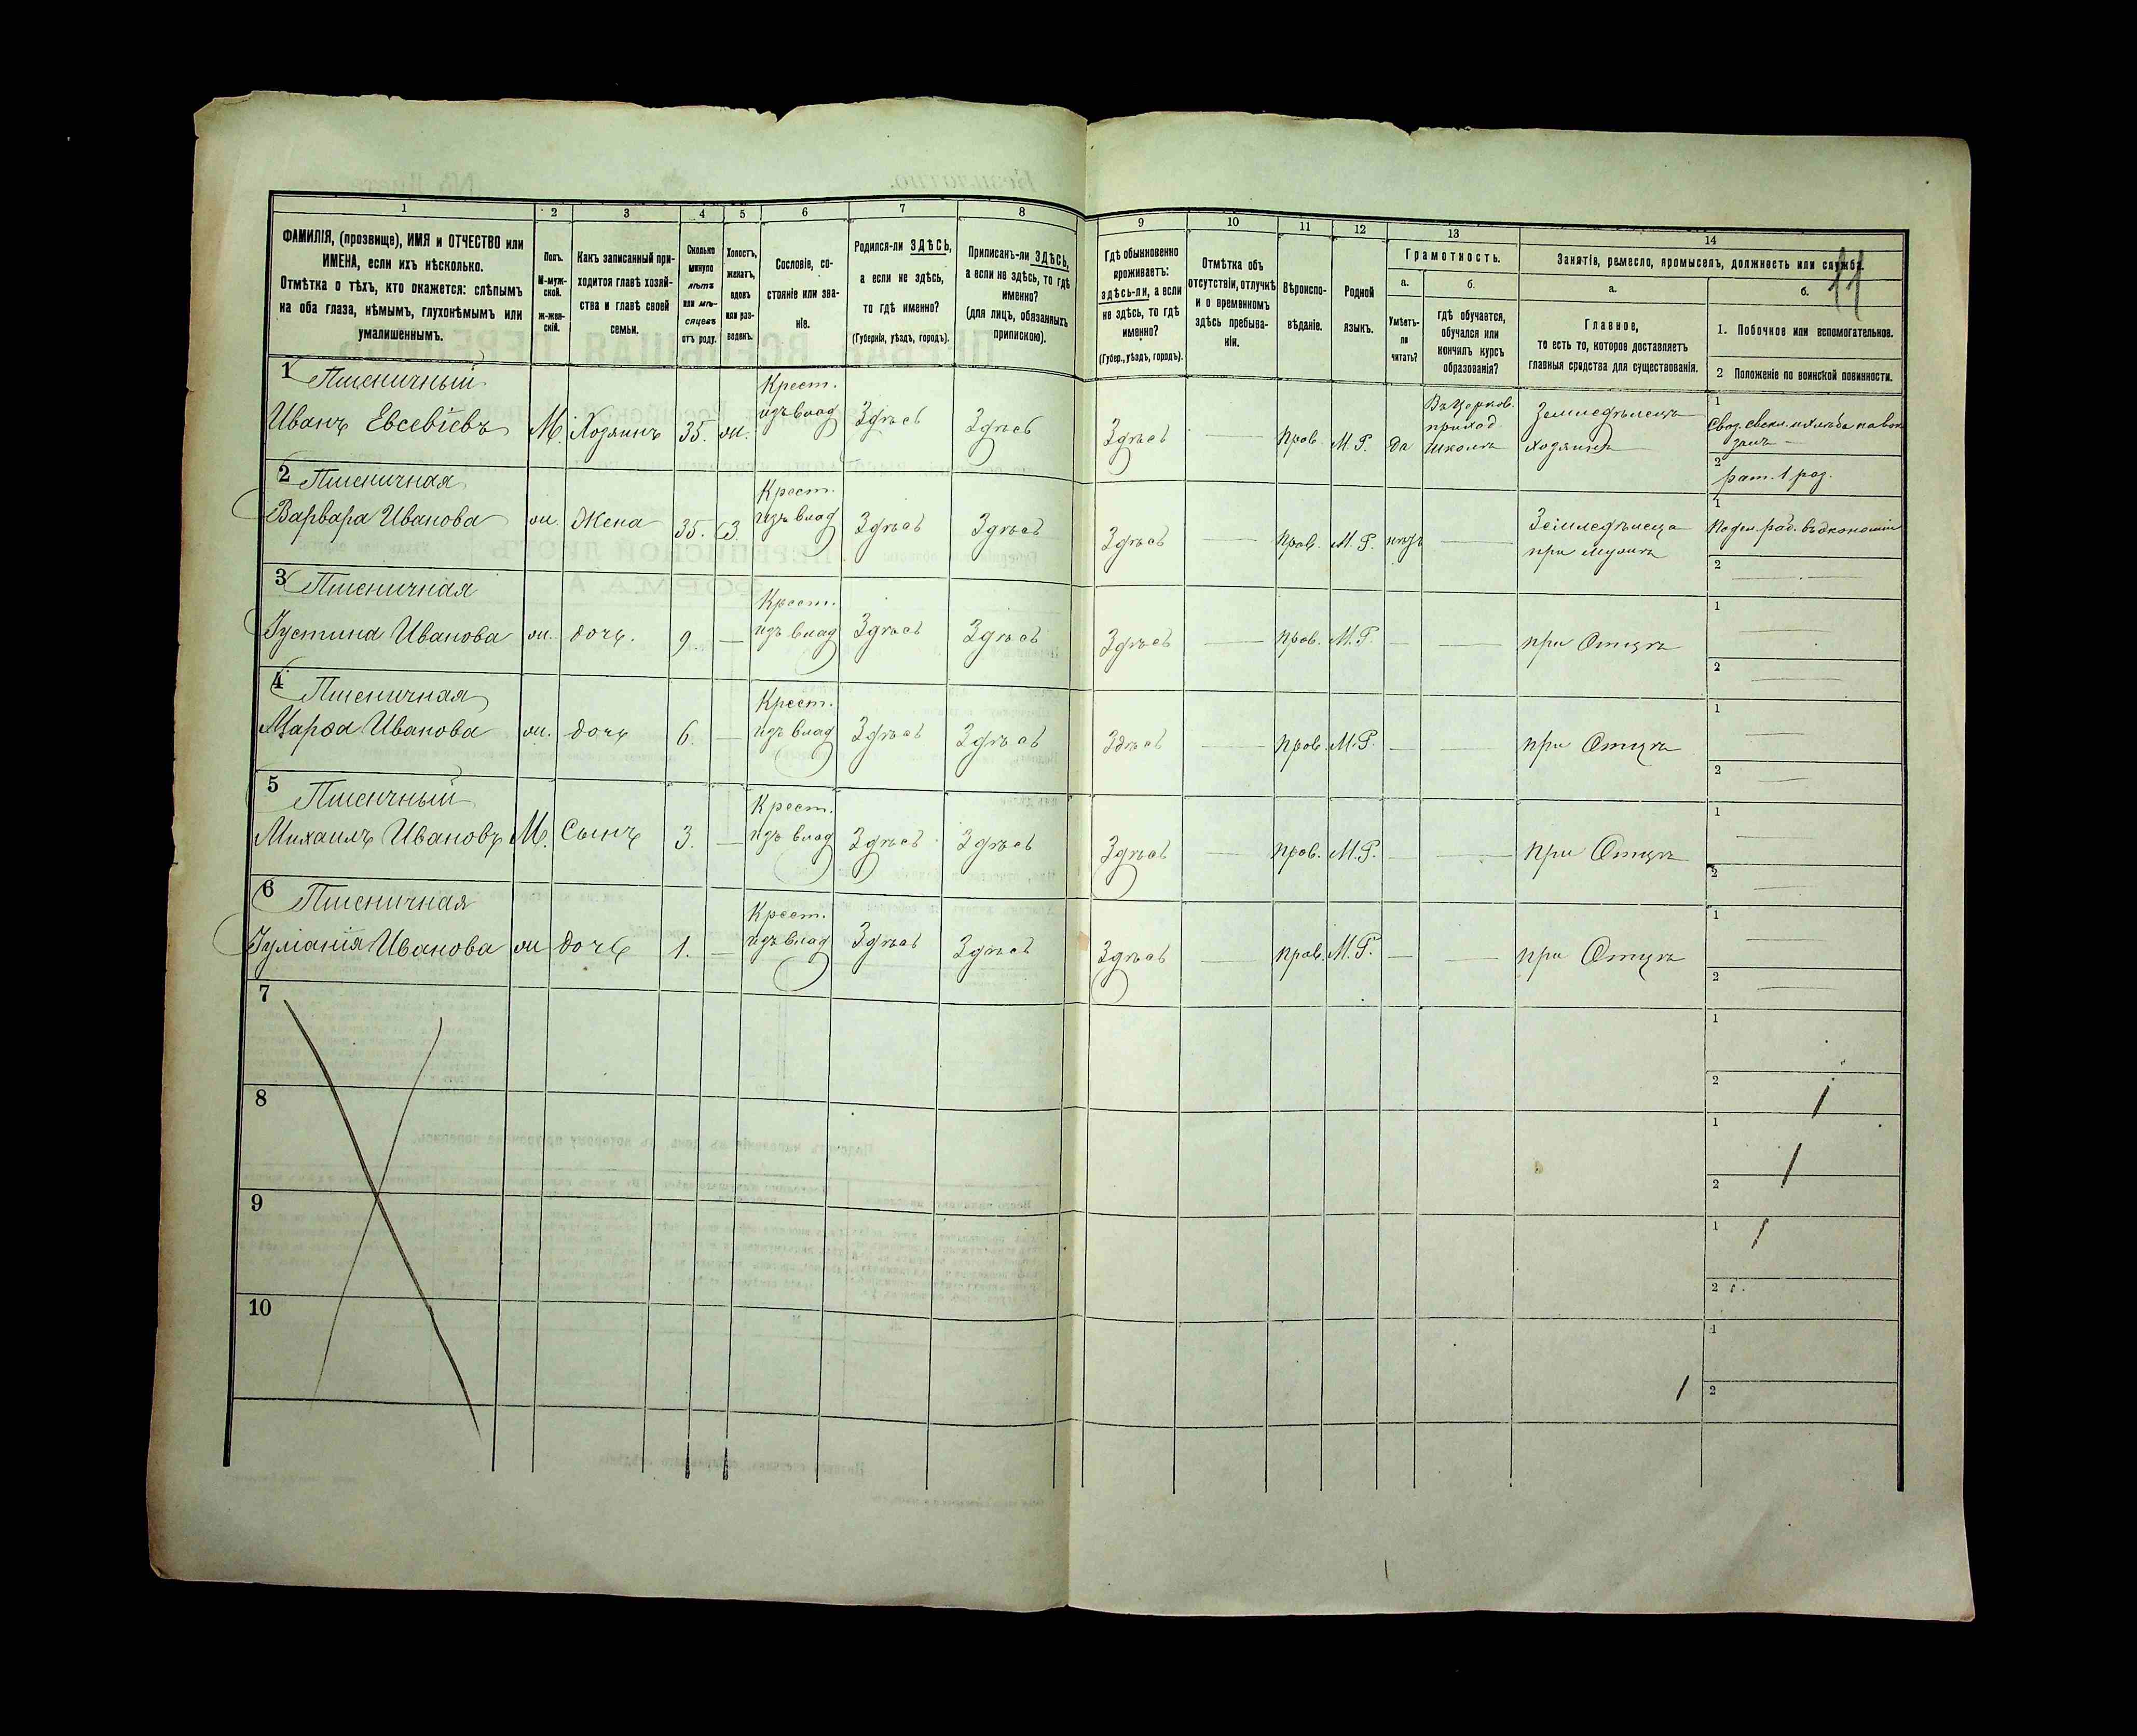 11
1 2 3 4 5 6 7 8 9 10 11 12 13 14
ФАМИЛІЯ, (прозвище), ИМЯ и ОТЧЕСТВО или
ИМЕНА, если ихъ нѣсколько.
Отмѣтка о тѣхъ, кто окажется: слѣпымъ
на оба глаза, нѣмымъ, глухонѣмымъ или
умалишеннымъ.
Полъ.
М-муж-
ской.
Ж-жен-
скій.
Какъ записанный при-
ходится главѣ хозяй-
ства и главѣ своей
семьи.
Сколько
минуло
лѣтъ
или мѣ-
сяцевъ
отъ роду.
Холостъ,
женатъ,
вдовъ
или раз-
веденъ.
Сословіе, со-
стояніе или зва-
ніе.
Родился-ли ЗДѢСЬ,
а если не здѣсь,
то гдѣ именно?
(Губернія, уѣздъ, городъ).
Приписанъ-ли ЗДѢСЬ,
а если не здѣсь, то гдѣ
именно?
(для лицъ, обязанныхъ
припискою).
Гдѣ обыкновенно
проживаетъ:
здѣсь-ли, а если
не здѣсь, то гдѣ
именно?
(Губер., уѣздъ, городъ).
Отмѣтка объ
отсутствіи, отлучкѣ
и о временномъ
здѣсь пребыва-
ніи.
Вѣроиспо-
вѣданіе.
Родной
языкъ.
Грамотность.
а.
Умѣетъ-
ли
читать?
б.
гдѣ обучается,
обучался или
кончилъ курсъ
образованія?
Занятіе, ремесло, промыселъ, должность или служба.
а.
Главное,
то есть то, которое доставляетъ
главныя средства для существованія.
б.
1. Побочное или вспомогательное.
2 Положеніе по воинской повинности.
1 Пшеничный Крест.
Иванъ Евсевіевъ М. Хозяинъ 35. ж. изъ влад Здѣсь Здѣсь Здѣсь — прав. М. Р. да
Въ церков.
приход.
школѣ
Земледѣлецъ
хозяинъ
1
2
рат. 1 раз.
2 Пшеничная Крест.
Варвара Иванова ж. Жена 35. З. изъ влад Здѣсь Здѣсь Здѣсь — прав. М. Р. нѣтъ —
Земледѣлица
при мужѣ
1 Поден. раб. въ экономіи
2 —
3 Пшеничная Крест.
Іустина Иванова ж. дочь. 9. — изъ влад Здѣсь Здѣсь Здѣсь — прав. М. Р. — — при Отцѣ
1 —
2 —
4 Пшеничная Крест.
Марѳа Иванова ж. дочь 6. — изъ влад Здѣсь Здѣсь Здѣсь — прав. М. Р. — — при Отцѣ
1 —
2 —
5 Пшеничный Крест.
Михаилъ Ивановъ М. Сынъ 3. — изъ влад Здѣсь Здѣсь Здѣсь — прав. М. Р. — — при Отцѣ
1 —
2 —
6 Пшеничная Крест.
Іуліанія Иванова ж дочь 1. — изъ влад Здѣсь Здѣсь Здѣсь — прав. М. Р. — — при Отцѣ
1 —
2 —
7
1
2
8
1
2
9
1
2
10
1
2